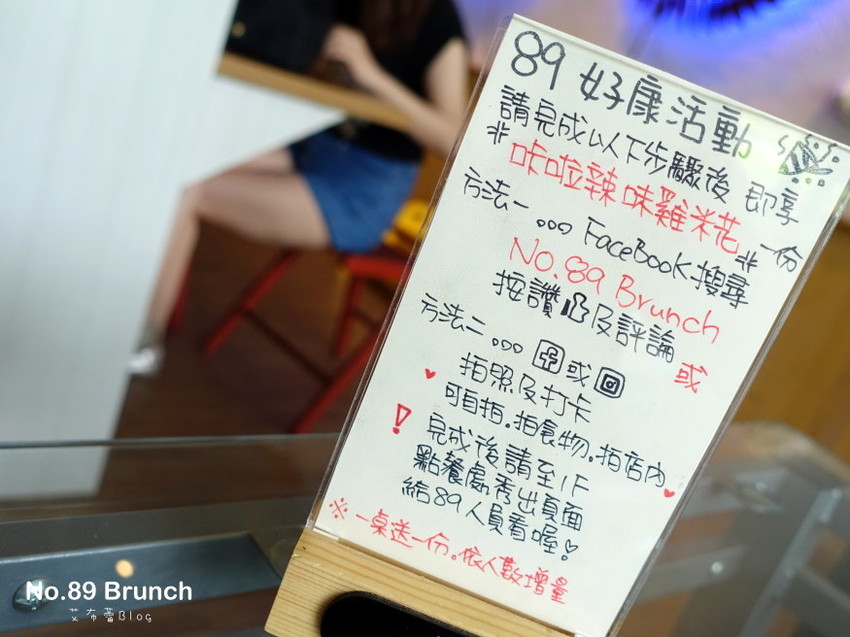 89 好康活動
請完成以下步驟後 即享
*咔啦辣味雞米花* 一份
方法一 。。。 FaceBook 搜尋
No.89 Brunch
按讚 及評論 或
方法二 。。。 或
拍照及打卡
可自拍.拍食物.拍店內
! 完成後請至1F
點餐處秀出頁面
給89人員看喔!
※一桌送一份。依人數增量
No.89 Brunch
艾布蕾Blog